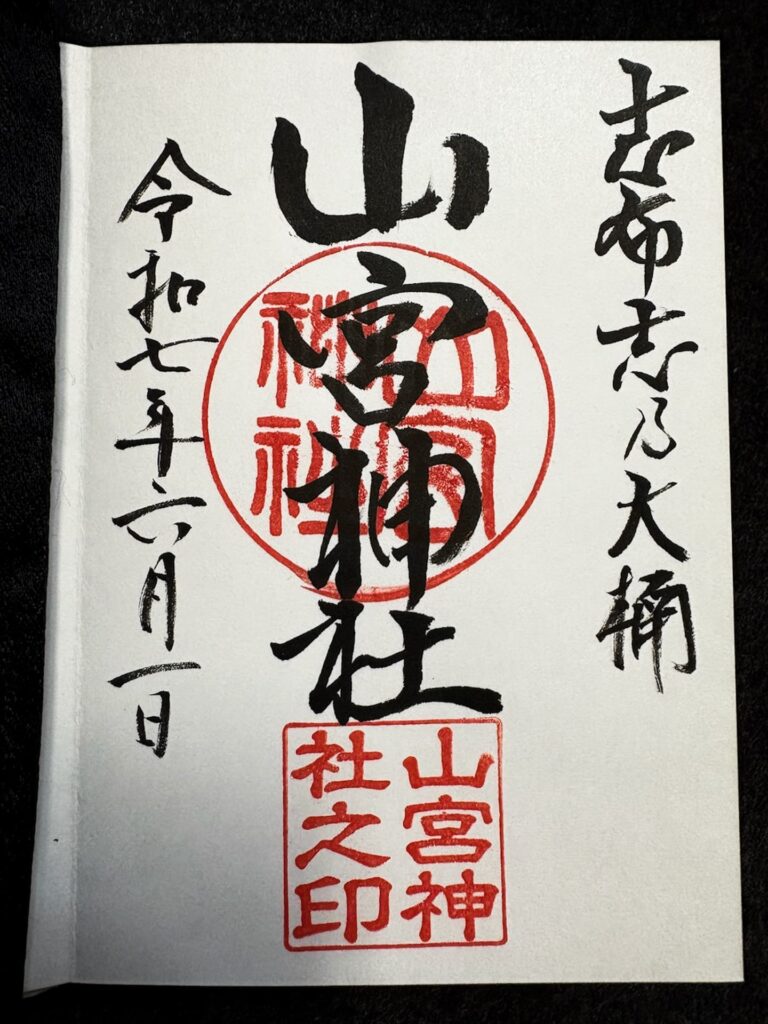 志布志乃大楠
山宮神社
山宮神社
山宮神
社之印
令和七年六月一日